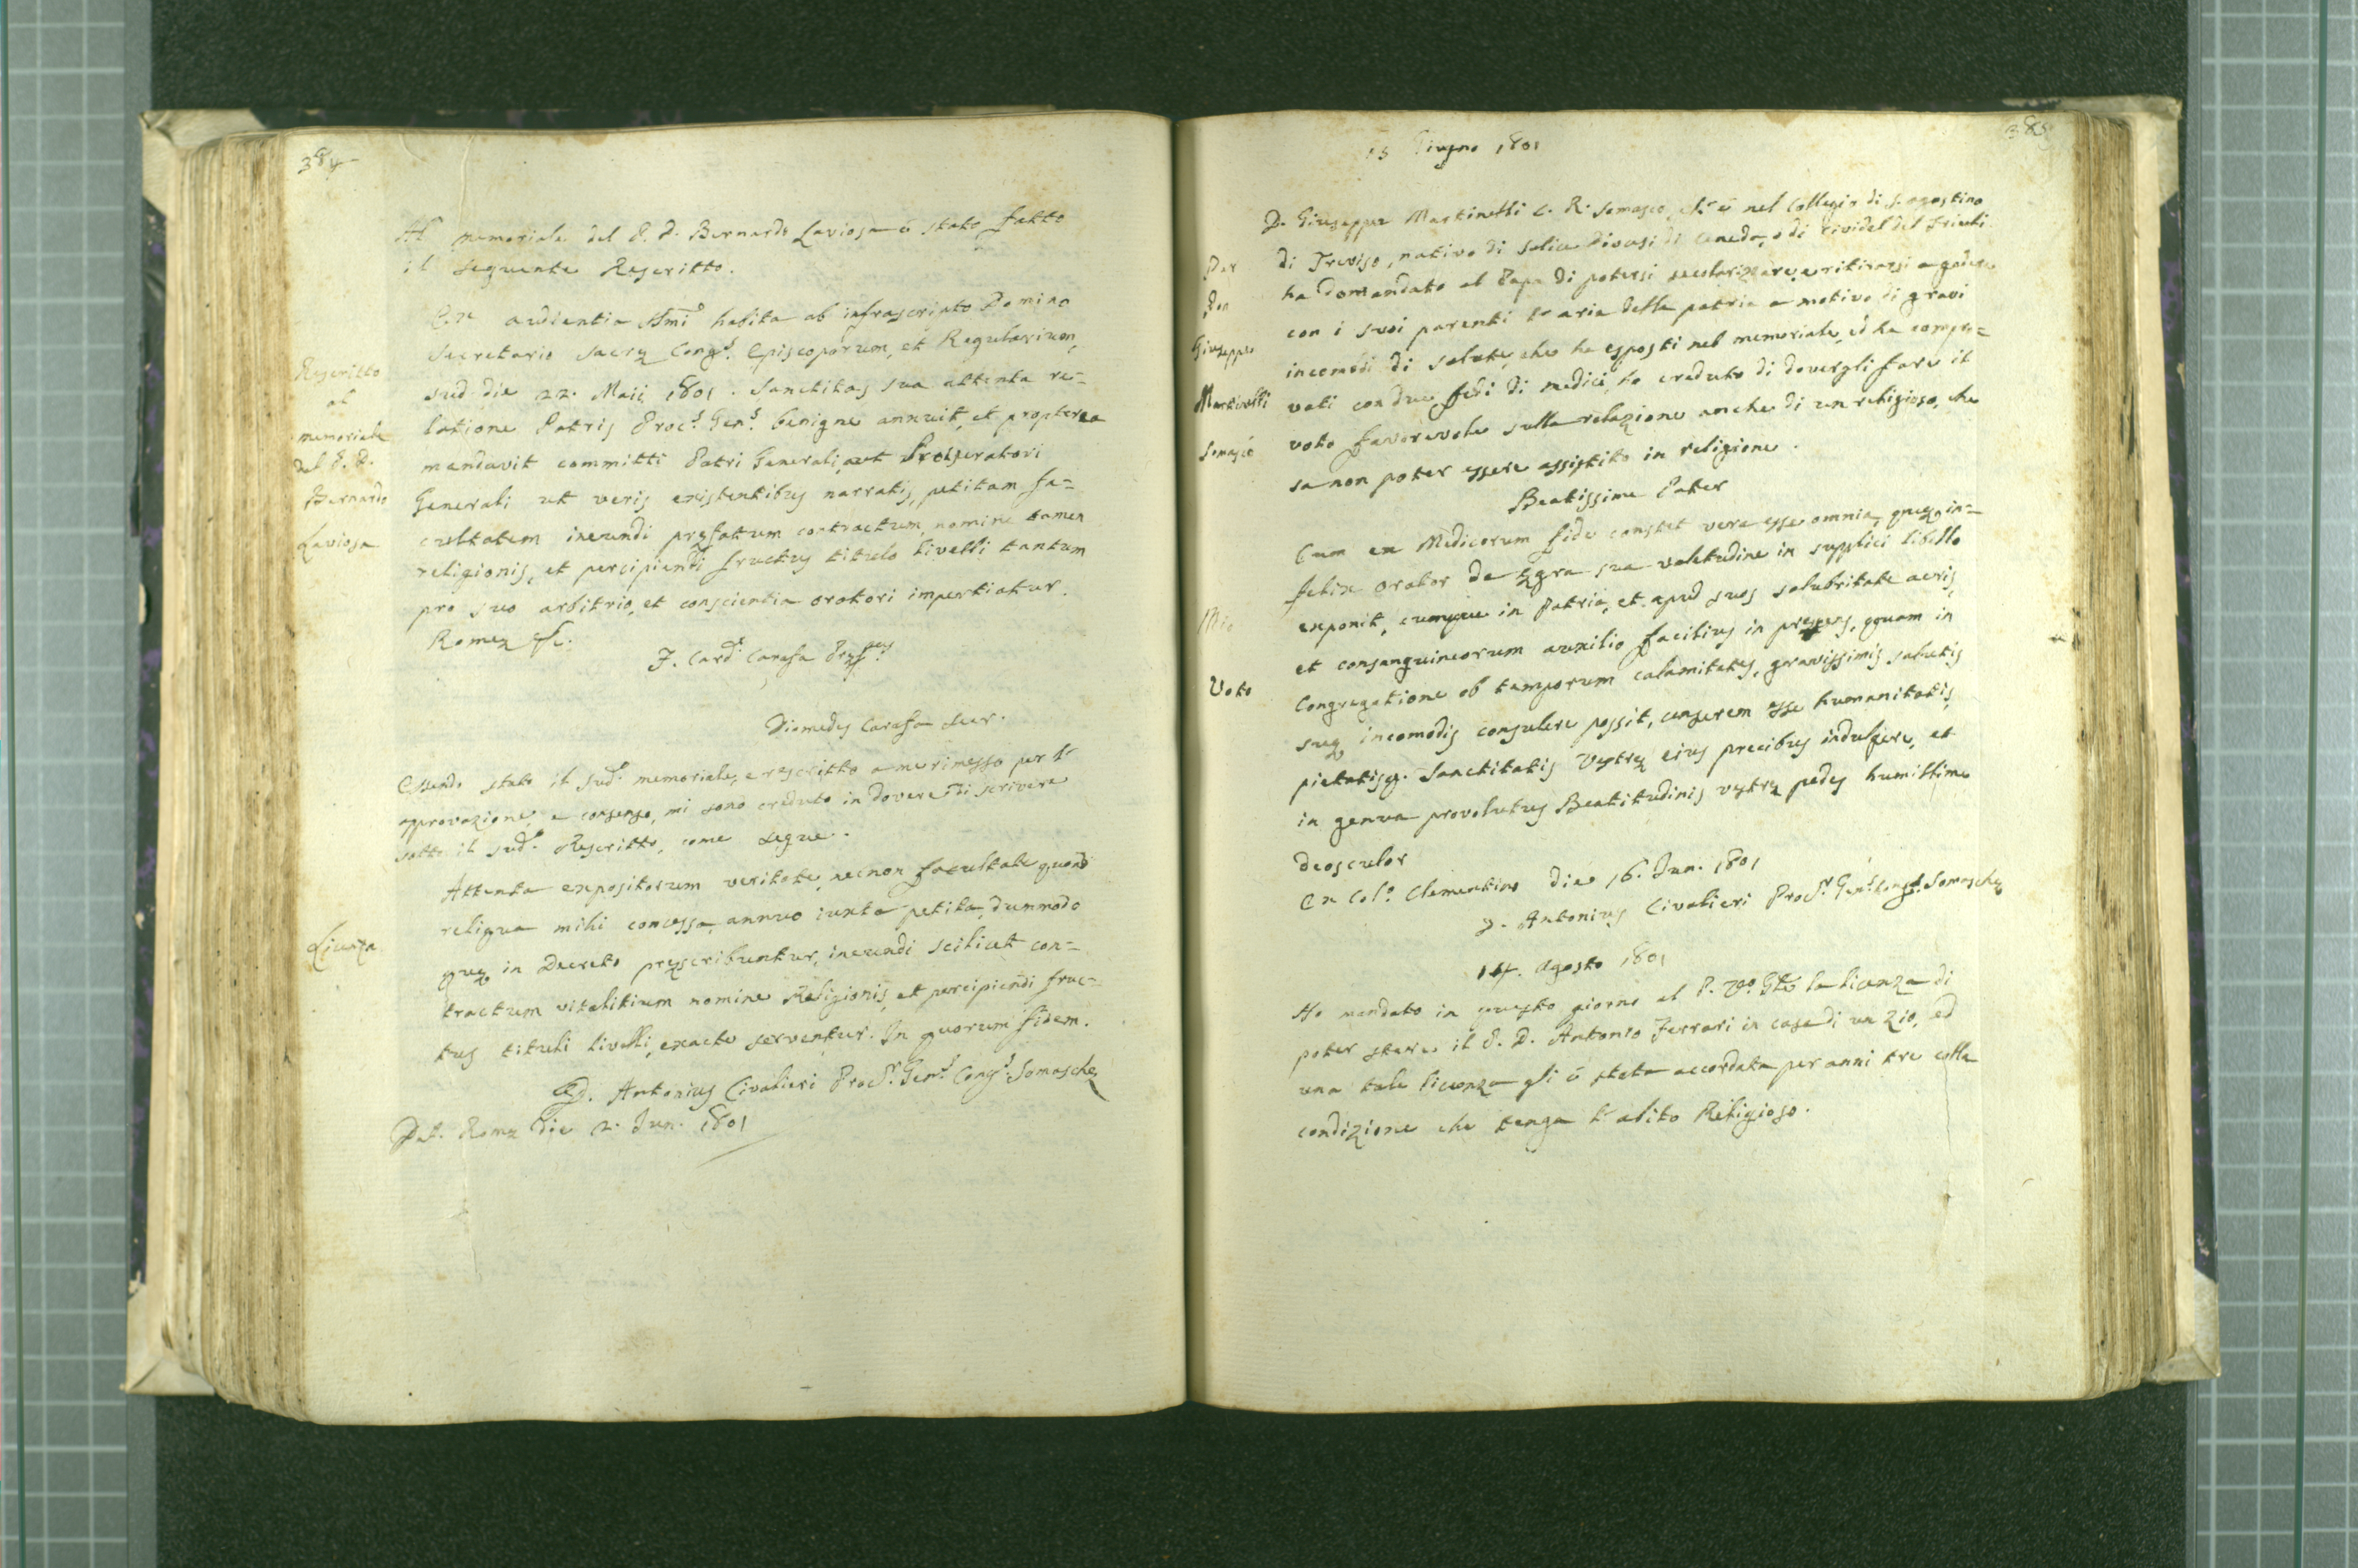 384
Al memoriale del P. D. Bernardo Laviosa è stato fatto
il seguente Rescritto.
Rescritto
al
memoriale
del P. D.
Bernardo
Laviosa
Ex audientia SSmi habita ab infrascripto Domino
Secretario Sacrę Congs. Episcoporum, et Regularium,
sub die 22. Maii 1801. Sanctitas sua attenta re=
latione Patris Procs. Gens. benigne annuit, et propterea
mandavit committi Patri Generali, aut Procuratori
Generali ut veris existentibus narratis, petitam fa=
cultatem ineundi pręfatum contractum, nomine tamen
religionis, et percipiendi fructus titulo livelli tantum
pro suo arbitrio, et conscientia oratori impertiatur.
Romę &c.
F. Card. Carafa
Diomedes Carafa Secr.
Essendo stato il sudo. memoriale, e rescritto a me rimesso per l'
approvazione, e consenso, mi sono creduto in dovere di scrivere
sotto il sudo. Rescritto, come segue.
Licenza
Attenta expositorum veritate, necnon facultate quoad
reliqua mihi concessa, annuo iuxta petita, dummodo
quę in Decreto pręscribuntur, ineundi scilicet con=
tractum vitalitium nomine Religionis, et percipiendi fruc=
tus tituli livelli, exacte serventur. In quorum fidem.
D. Antonius Civalieri Procr. Gens. Congs. Somaschę
Dat. Romę die 2. Jun. 1801
385
15 Giugno 1801
Per
Don
Giuseppe
Martinelli
Somasco
D. Giuseppe Martinelli C. R. Somasco, ch'è nel Collegio di S. Agostino
di Treviso, nativo di Salice Diocesi di Ceneda, o di Cividal del Friuli
ha domandato al Papa di potersi secolarizzare, e ritirarsi a godere
con i suoi parenti l'aria della patria a motivo di gravi
incomodi di salute, che ha esposti nel memoriale, ed ha compro=
vati con due fedi di medici, ho creduto di dovergli fare il
voto favorevole sulla relazione anche di un religioso, che
sa non poter essere assistito in religione.
Beatissime Pater
Mio
Voto
Cum ex Medicorum fide constet vera esse omnia, quę in=
felix orator de ęgra sua valetudine in supplici libello
exponit, cumque in Patria, et apud suos salubritate aeris,
et consanguineorum auxilio facilius in pręsens, quam in
Congregatione ob temporum calamitates, gravissimis salutis
suę incomodis consulere possit, censerem esse humanitatis,
pietatisq. Sanctitatis Vestrę eius precibus indulgere, et
in genua provolutus Beatitudinis vestrę pedes humillime
deosculor
Ex Colo. Clementino die 16. Jun. 1801
D. Antonius Civalieri Procr. Gens. Congs. Somaschę
14. Agosto 1801
Ho mandato in questo giorno al P. Vo. Gle la licenza di
poter stare il P. D. Antonio Ferrari in casa di un Zio, ed
una tale licenza gli è stata accordata per anni tre colla
condizione che tenga l'abito Religioso.